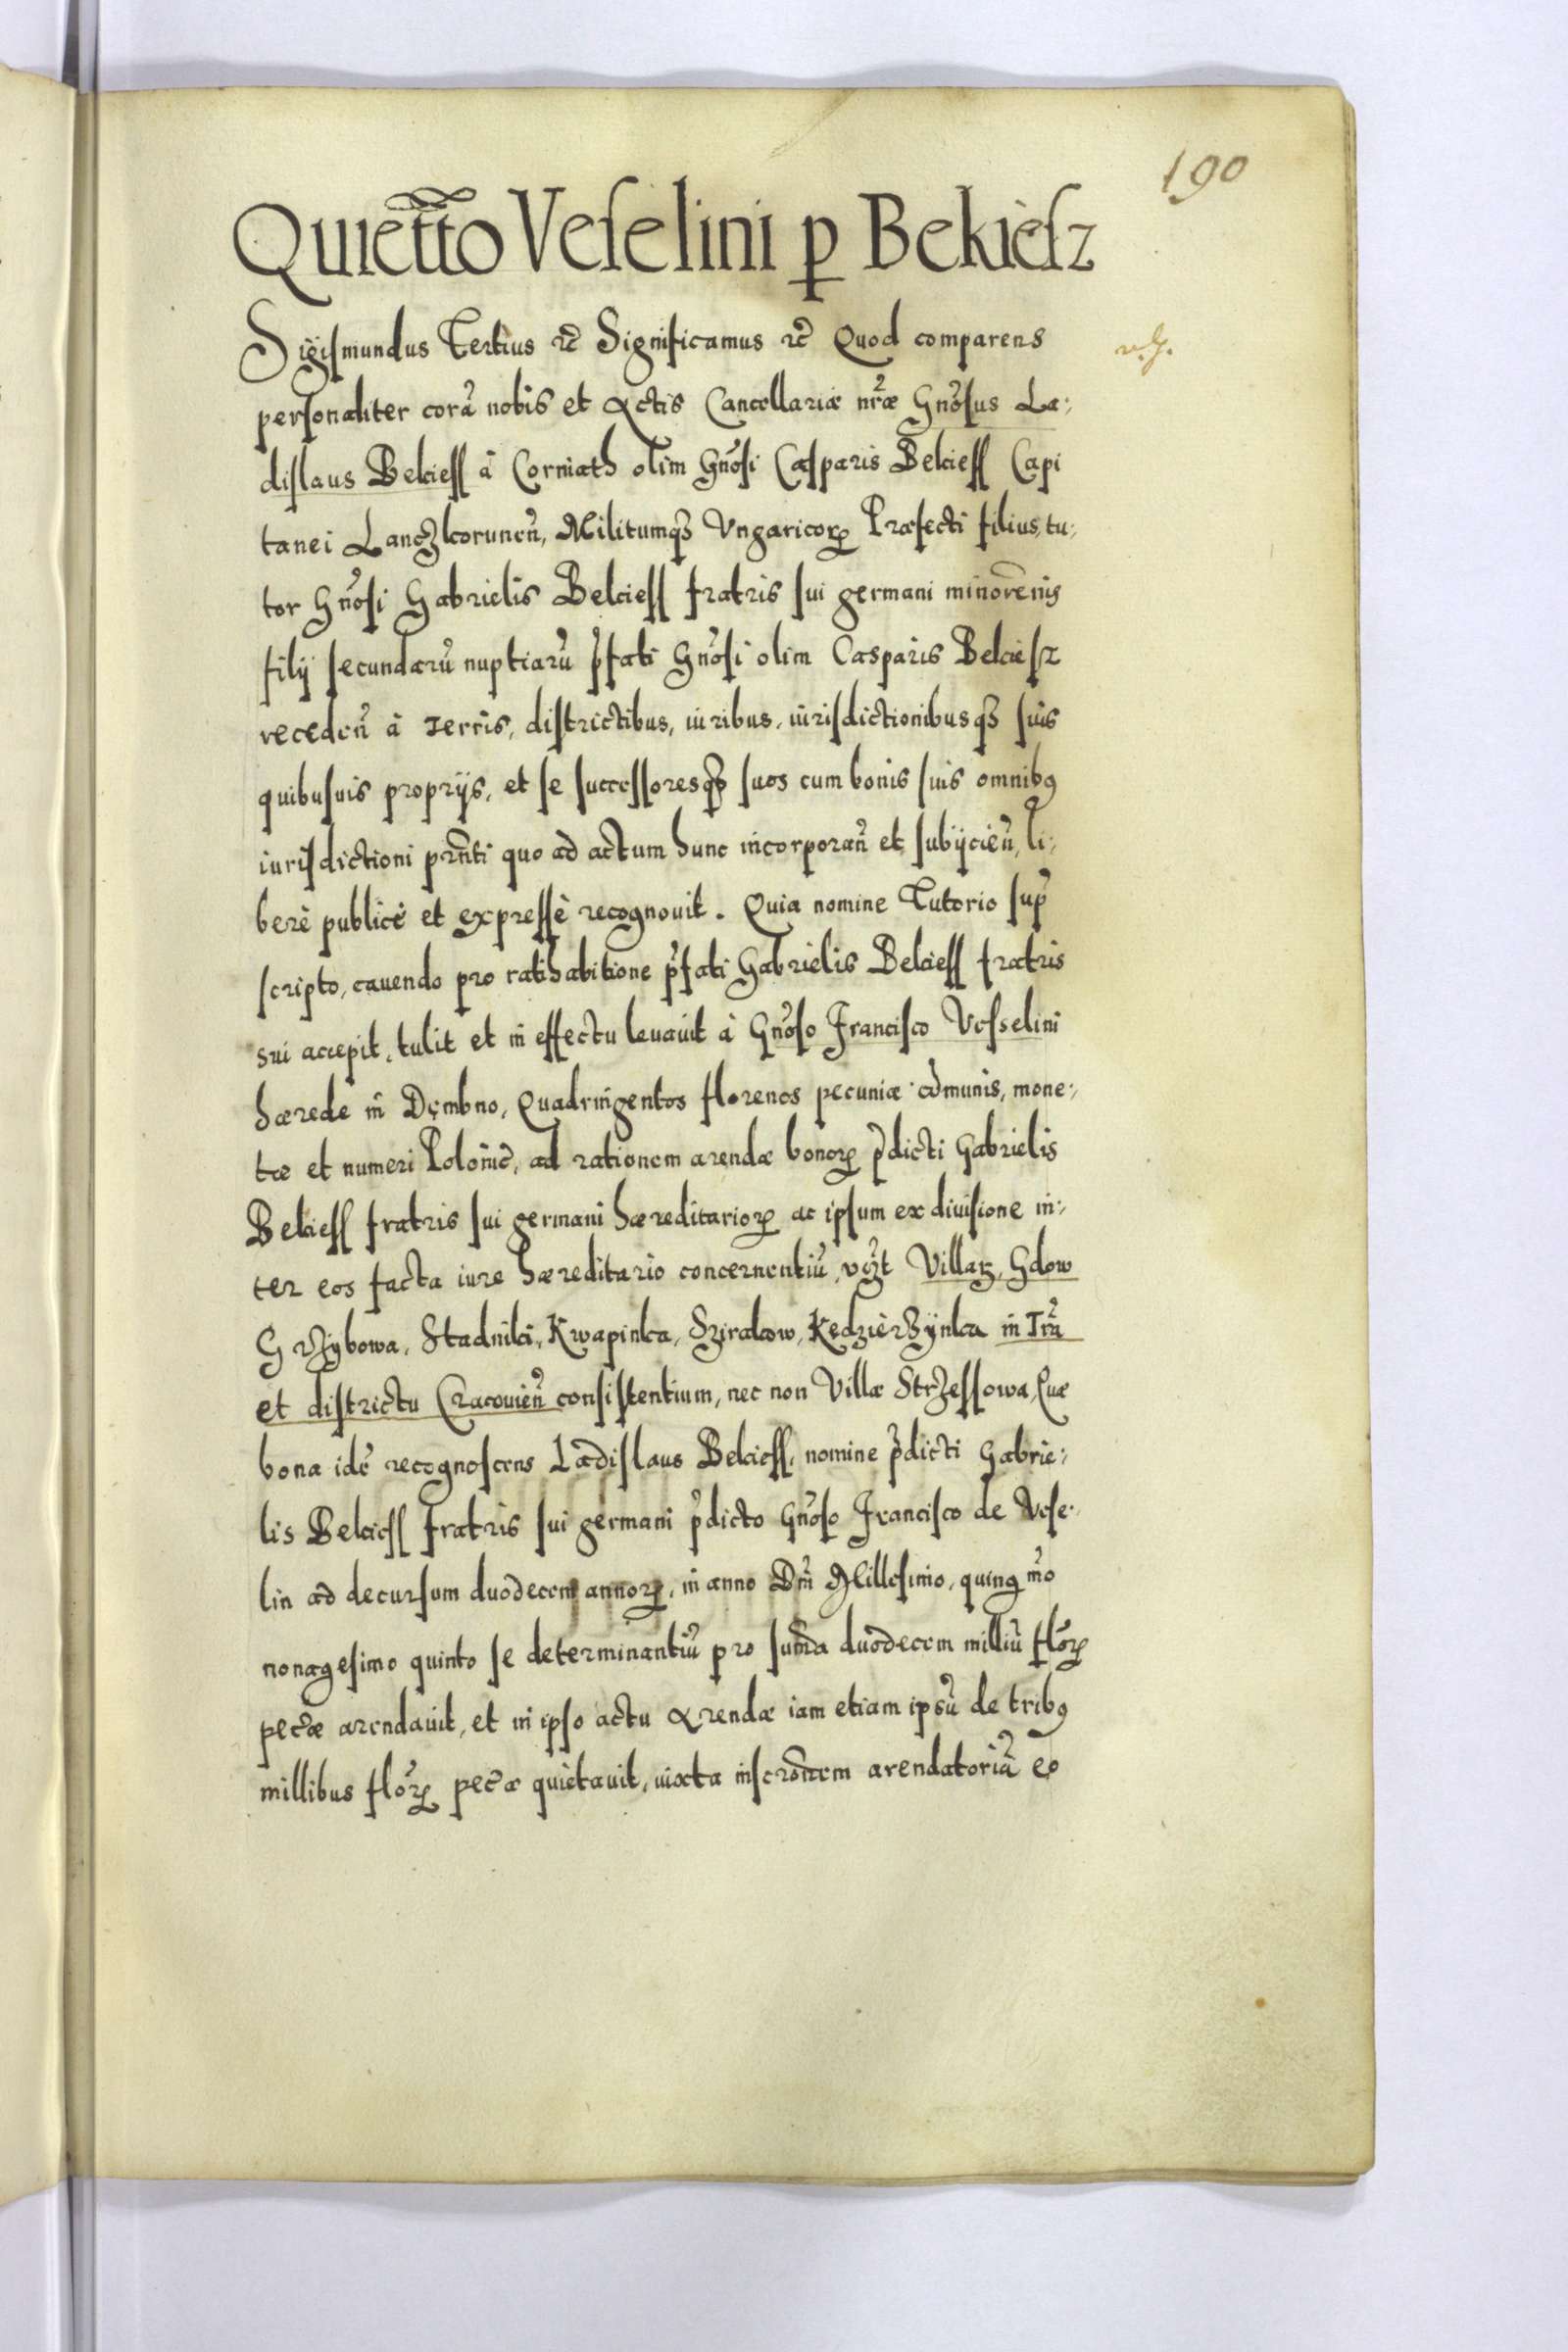 190
Quiet̃to Veselini p Bekièsz
Sigismundus Tertius ꝛc̃ Significamus ꝛc̃ Quod comparens
personaliter corã nobis et Actis Cancellariæ nr̃æ Gnõsus La:
dislaus Bekiess à Corniath olim Gnõsi Casparis Bekiess Capi
tanei Lanczkorunen̄, Militumqꝫ Vngaricorꝝ Præfecti filius, tu:
tor Gnõsi Gabrielis Bekiess fratris sui germani minorēnis
filij secundarũ nuptiarũ p̃fati Gnõsi olim Casparis Bekiesz
receden̄ à Terris, districtibus, iuribus, iurisdictionibusqꝫ suis
quibusuis proprijs, et se successoresqꝫ suos cum bonis suis omnibꝰ
iurisdictioni prñti quo ad actum hunc incorporan̄ et subijcien̄, li:
berè publicè et expressè recognouit. Quia nomine Tutorio sup̃
scripto, cauendo pro ratihabitione p̃fati Gabrielis Bekiess fratris
sui accepit, tulit et in effectu leuauit à Gnõso Francisco Vesselini
hærede in Dęmbno, Quadringentos florenos pecuniæ cõmunis, mone:
tæ et numeri Polonic̃, ad rationem arendæ bonorꝝ p̃dicti Gabrielis
Bekiess fratris sui germani hæreditariorꝝ ac ipsum ex diuisione in:
ter eos facta iure hæreditario concernentiũ, vꝫt Villarꝝ, Gdow
Grzybowa, Stadniki, Kwapinka, Szirakow, Kędzièrzÿnka in Trã
et districtu Cracouien̄ consistentium, nec non Villæ Strzessowa, Quæ
bona idẽ recognoscens Ladislaus Bekiess, nomine p̃dicti Gabrie:
lis Bekiess fratris sui germani p̃dicto Gnõso Francisco de Vese:
lin ad decursum duodecem annorꝝ, in anno Dñi Millesimo, quingm̃o
nonagesimo quinto se determinantiũ pro sum̃a duodecem milliũ flõrꝝ
pec̃æ arendauit, et in ipso actu Arendæ iam etiam ipsũ de tribꝰ
millibus flõrꝝ pec̃æ quietauit, iuxta inscrõnem arendatoriã eo